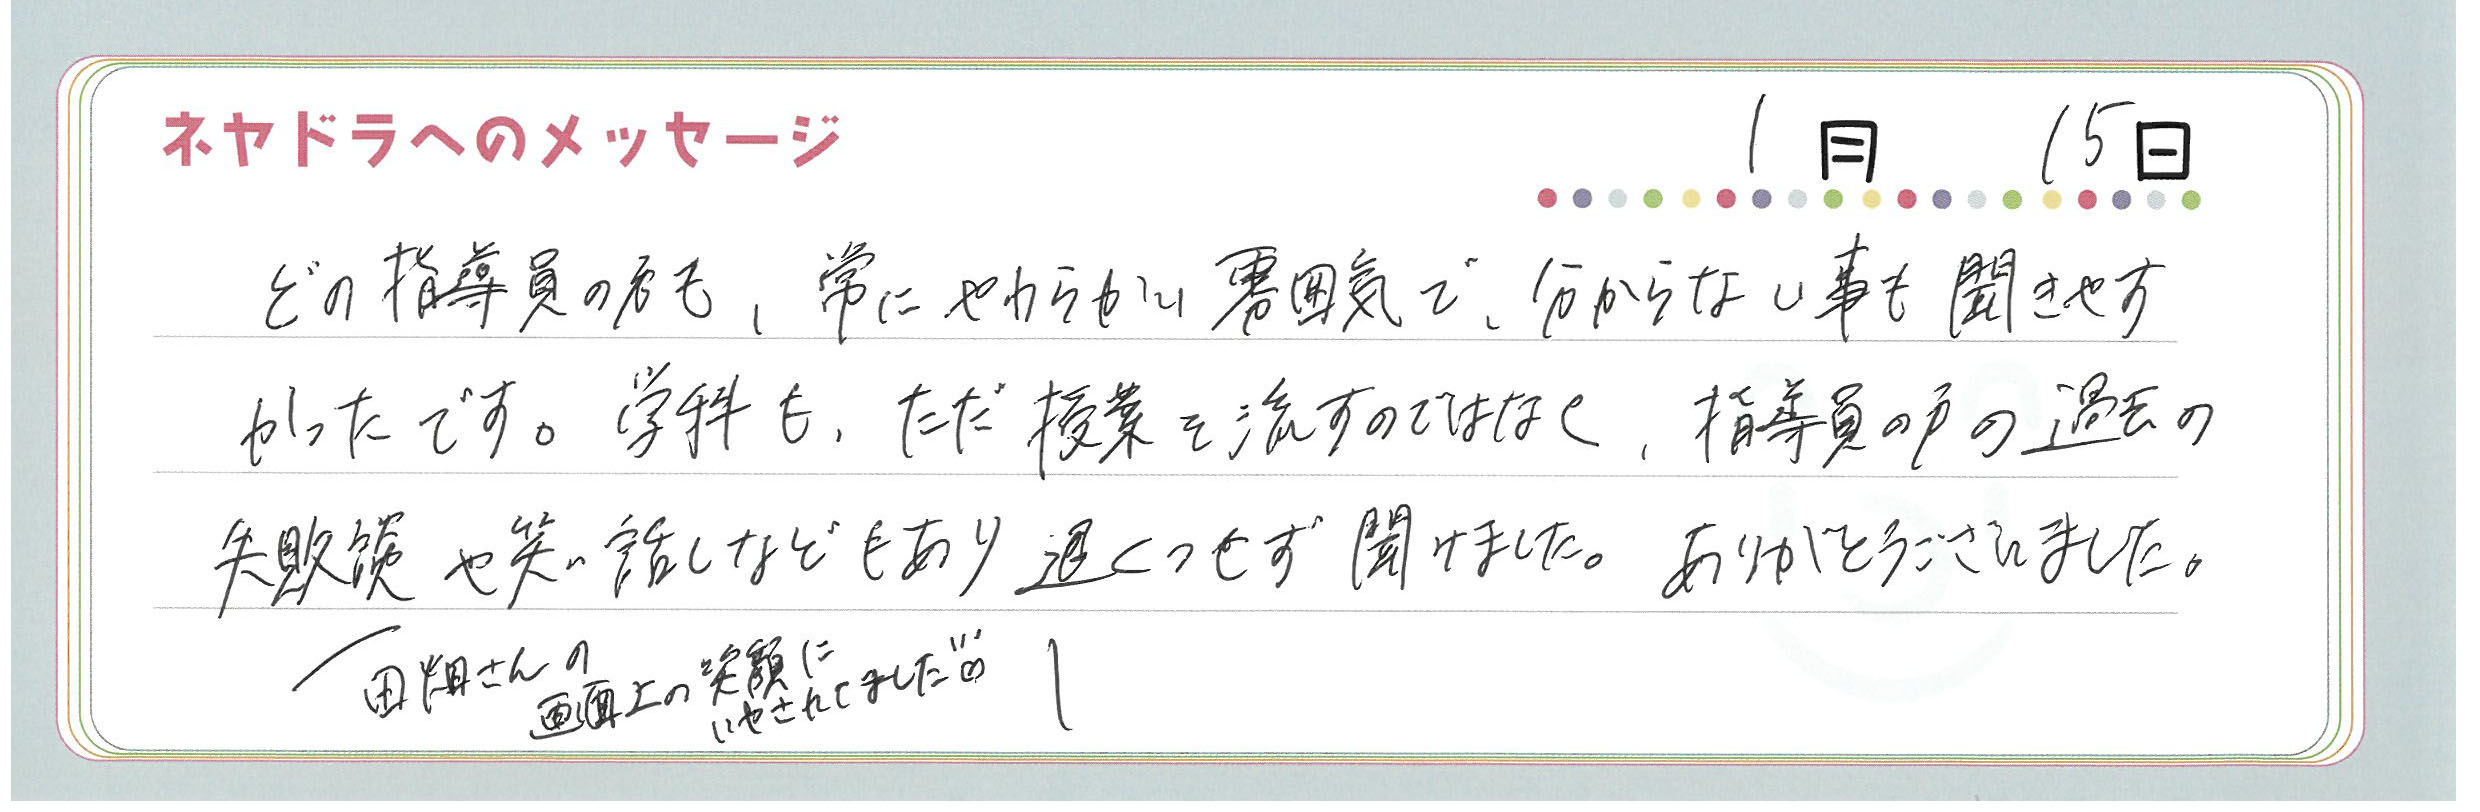 ネヤドラへのメッセージ
1月 15日
どの指導員の方も、常にやわらかい雰囲気で、分からない事も聞きやす
かったです。学科も、ただ授業を流すのではなく、指導員の方の過去の
失敗談や笑い話しなどもあり退くつせず聞けました。ありがとうございました。
(田畑さんの
画面上の笑顔に
いやされてました)